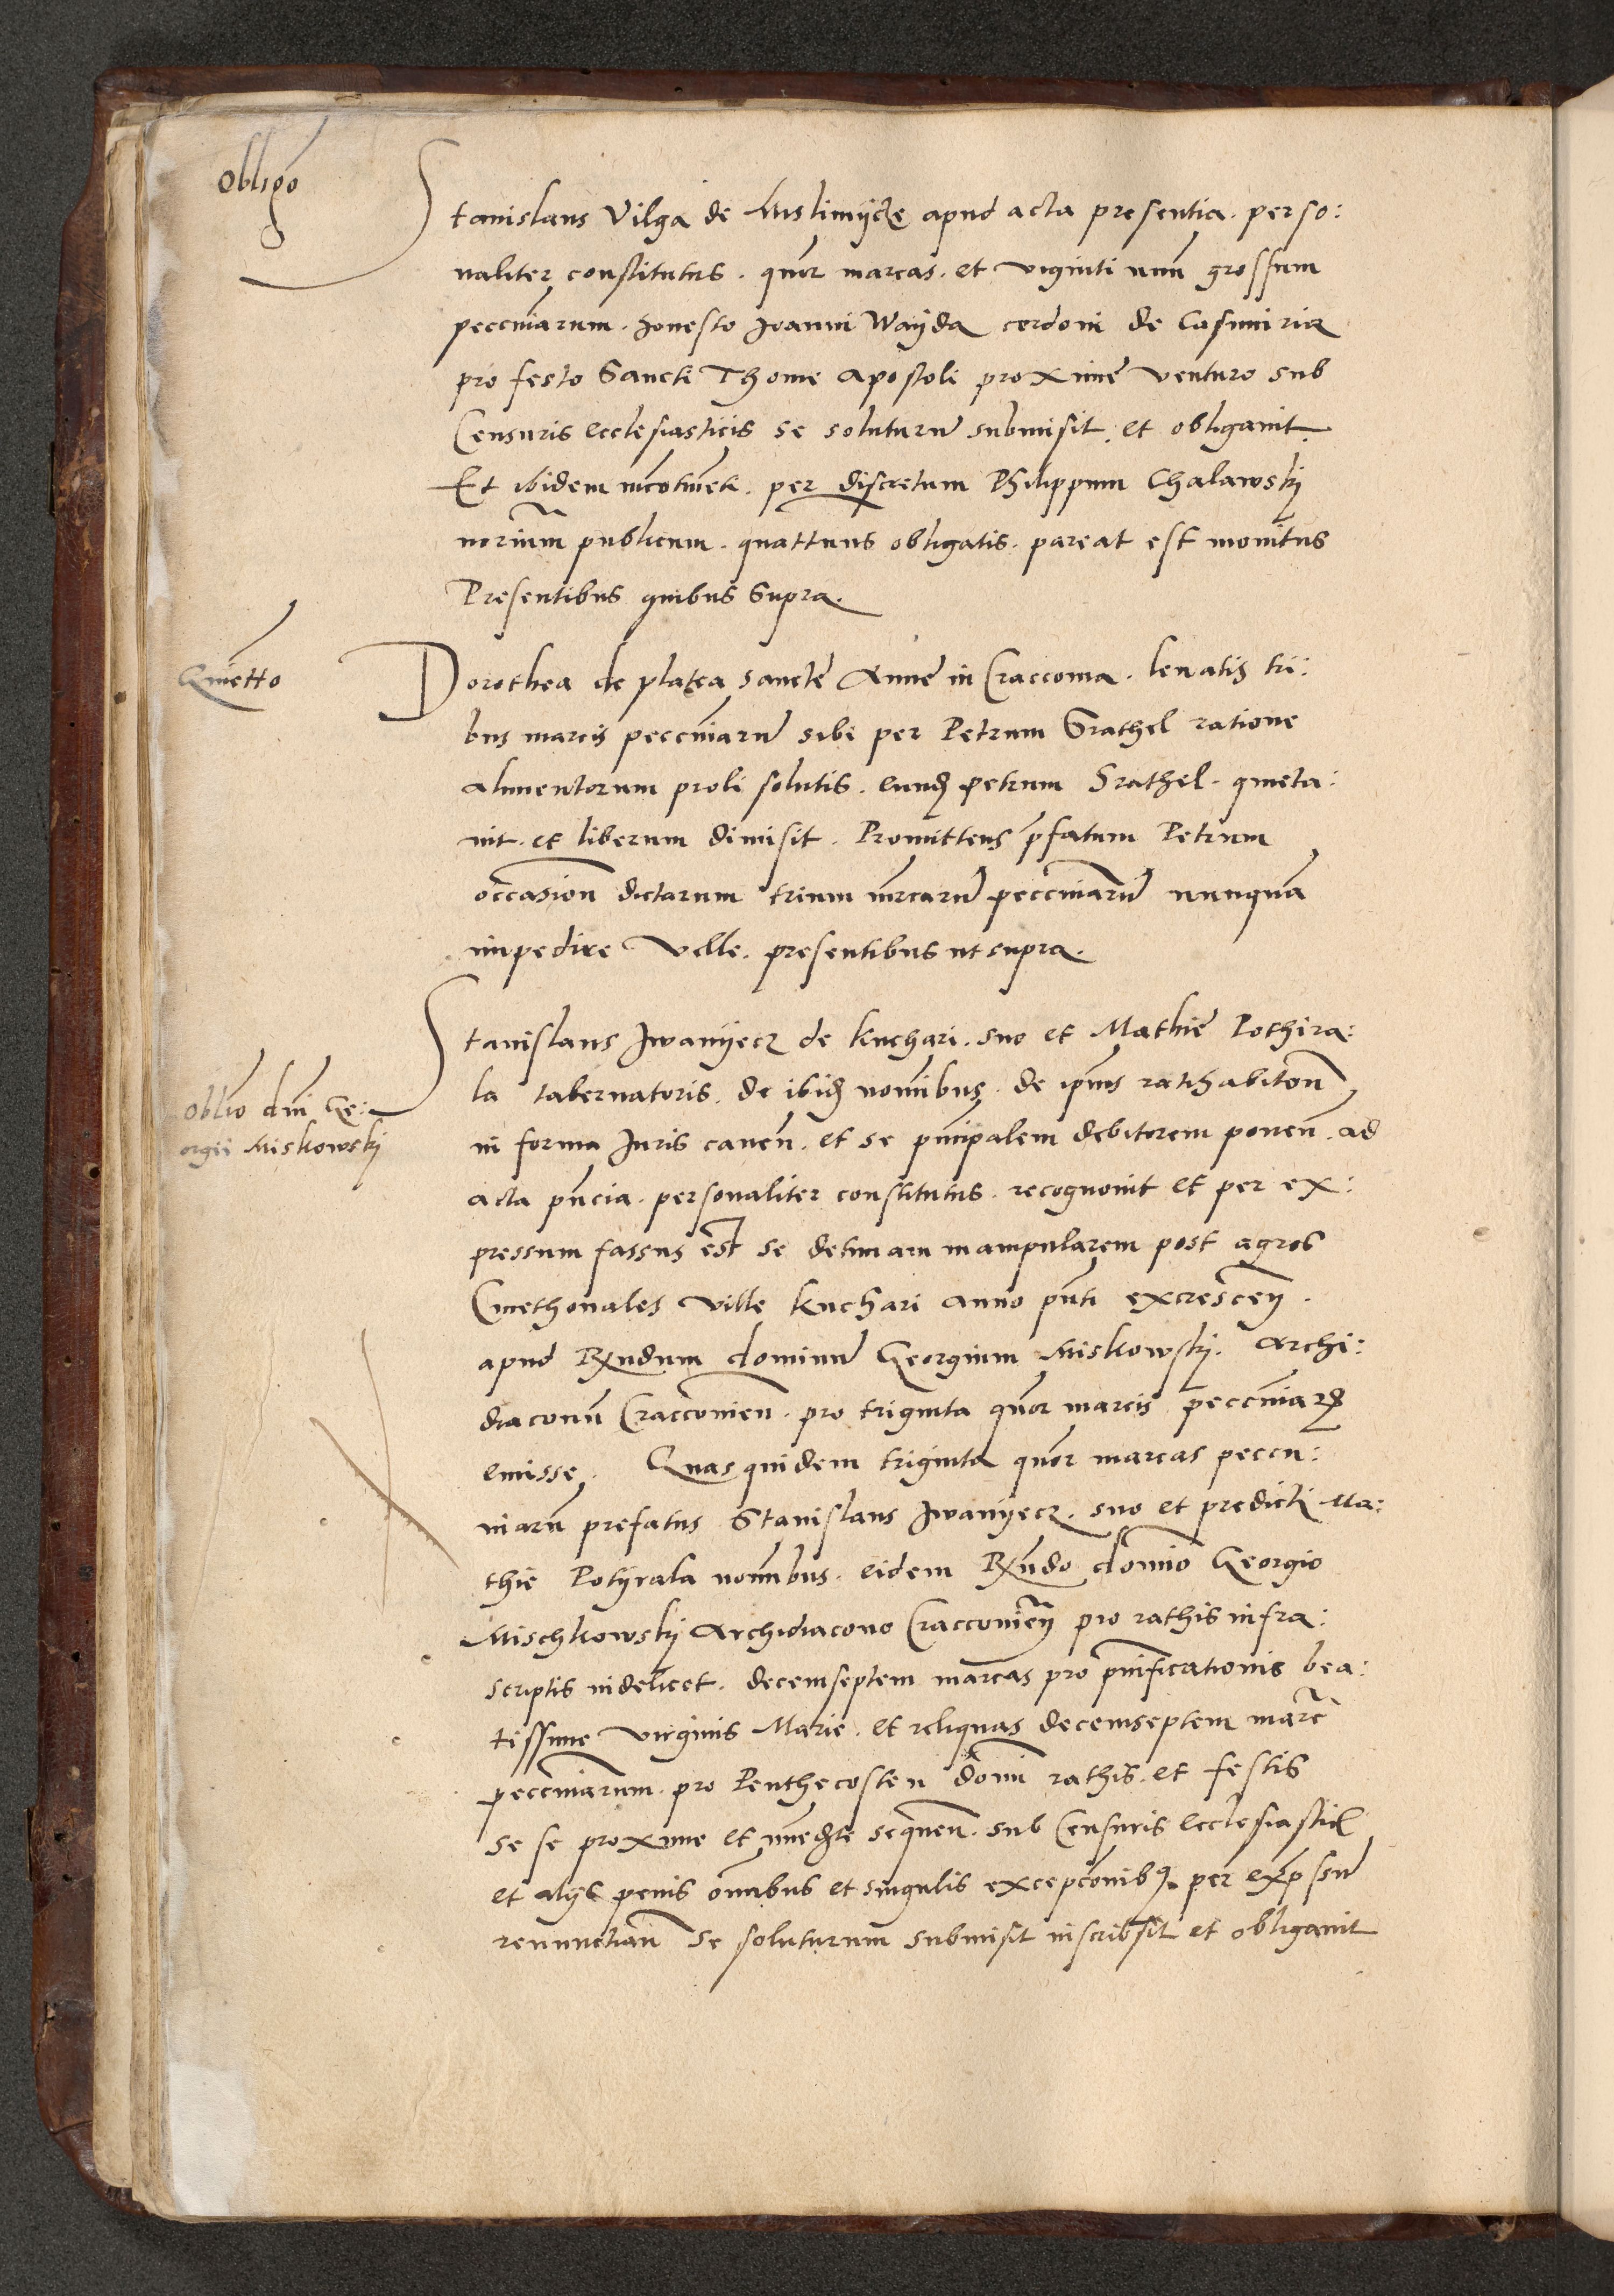 Obligo
Stanislaus Vilga de Mislimycze apud acta presentia. perso:
naliter constitutus. quor marcas. et viginti unū grossum
peccniarum. honesto Joanni Wayda cerdoni de Casimiria
pro festo Sancti Thome Apostoli proxime venturo sub
Censuris ecclesiasticis se soluturū submisit. et obligauit.
Et ibidem incotineti. per discretum Philippum Chalawskj
noriūm publicum. quattnus obligatis. pareat est monitus
Presentibus quibus Supra.
Quietto
Dorothea de platea sancte Anne in Craccouia. leuatis tri:
bus marcis peccniarū sibi per Petrum Srathel ratione
alimentorum proli solutis. eundꝫ petrum Srathel. quieta:
uit. et liberum dimisit. Promittens p̄fatum Petrum
occasion̄ dictarum trium mrcarū peccniarū nunquā
impedire Velle. presentibus ut supra.
Oblio dni Ge:
orgii Miskowskj
Stanislaus Jwanyecz de kuchari. suo et Mathie Pothira:
la tabernatoris. de ibidꝫ nomibus. de ipius ratihabiton̄
in forma Juris cauen̄. et se pncipalem debitorem ponen̄. ad
acta pn̄cia. personaliter constitutus. recognouit et per ex:
pressum fassus est se detimam manipularem post agros
Cmethonales ville kuchari anno pn̄ti excrescen̄.
apud Rn̄dum dominū Georgium Miskowskj. Archi:
diaconū Cracconien̄. pro triginta quor marcis peccniarꝫ
emisse. Quas quidem triginta quor marcas peccu:
niarū prefatus Stanislaus Jwanyecz. suo et predicti Ma:
thie Potyrala nomībus. eidem Rn̄do domīo Georgio
Mischkowskj Archidiacono Cracconien̄ pro rathis infra:
scriptis uidelicet. decemseptem marcas pro purificationis bea:
tissime virginis Marie. et reliquas decemseptem marc̄
peccniarum. pro Penthecosten domī rathis. et festis
se se proxime et imedte sequen̄. sub Censuris ecclesiastic̄
et alijs penis omībus et singulis excepconibꝫ. per exp̄ssū
renunctian̄ se soluturum submisit inscribsit et obligauit